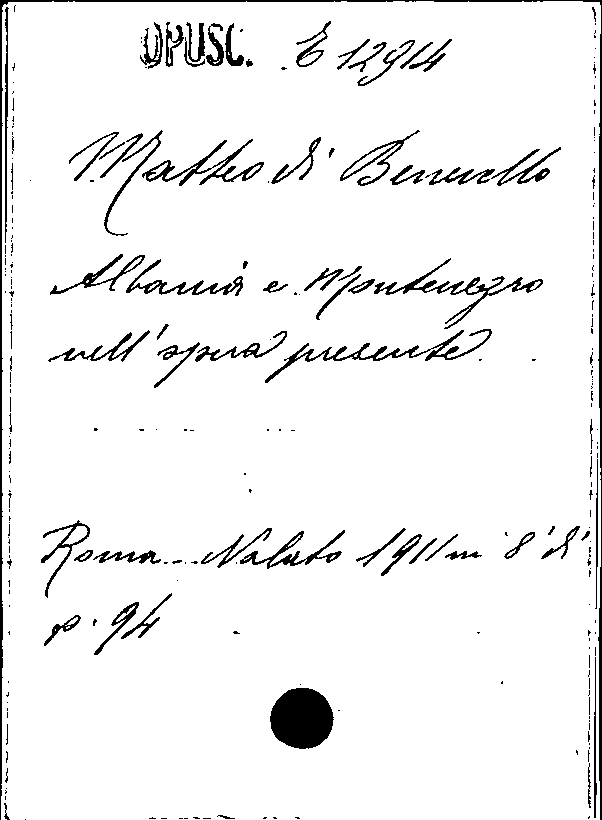 OPUSC. E 12914
Matteo di Benevello
Albania e Montenegro
nell'opera presente.
Roma - Nalato 1911 in 8° di
p. 94